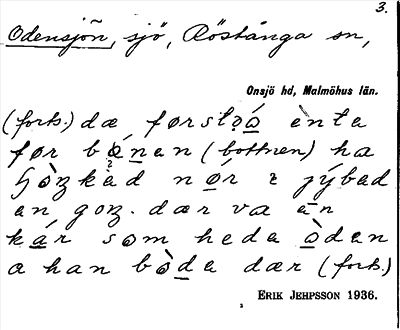 3.
Odensjön, sjö, Röstånga sn,
Onsjö hd, Malmöhus län.
(forts.) dæ førstọó ènta
før bǿnen (bottnen) ha
hòzkad nǿr ı jýbad
en goz. dær va en
kár som heda òden
a han bòda dær (forts.)
ERIK JEHPSSON 1936.